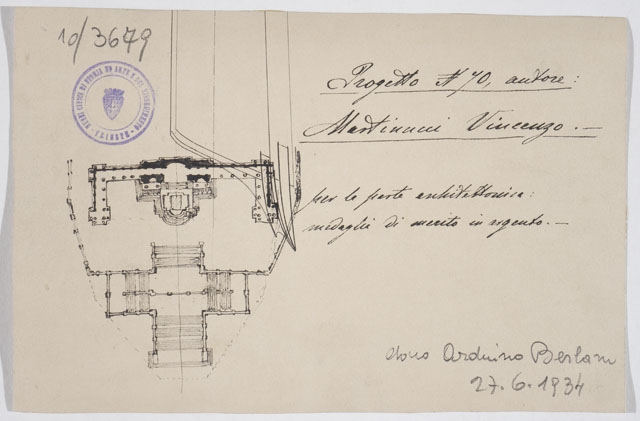 10/3679
Progetto N 70, autore:
Martinucci Vincenzo.—
per la parte architettonica:
medaglia di merito in argento.—
dono Arduino Berlam
27.6.1934